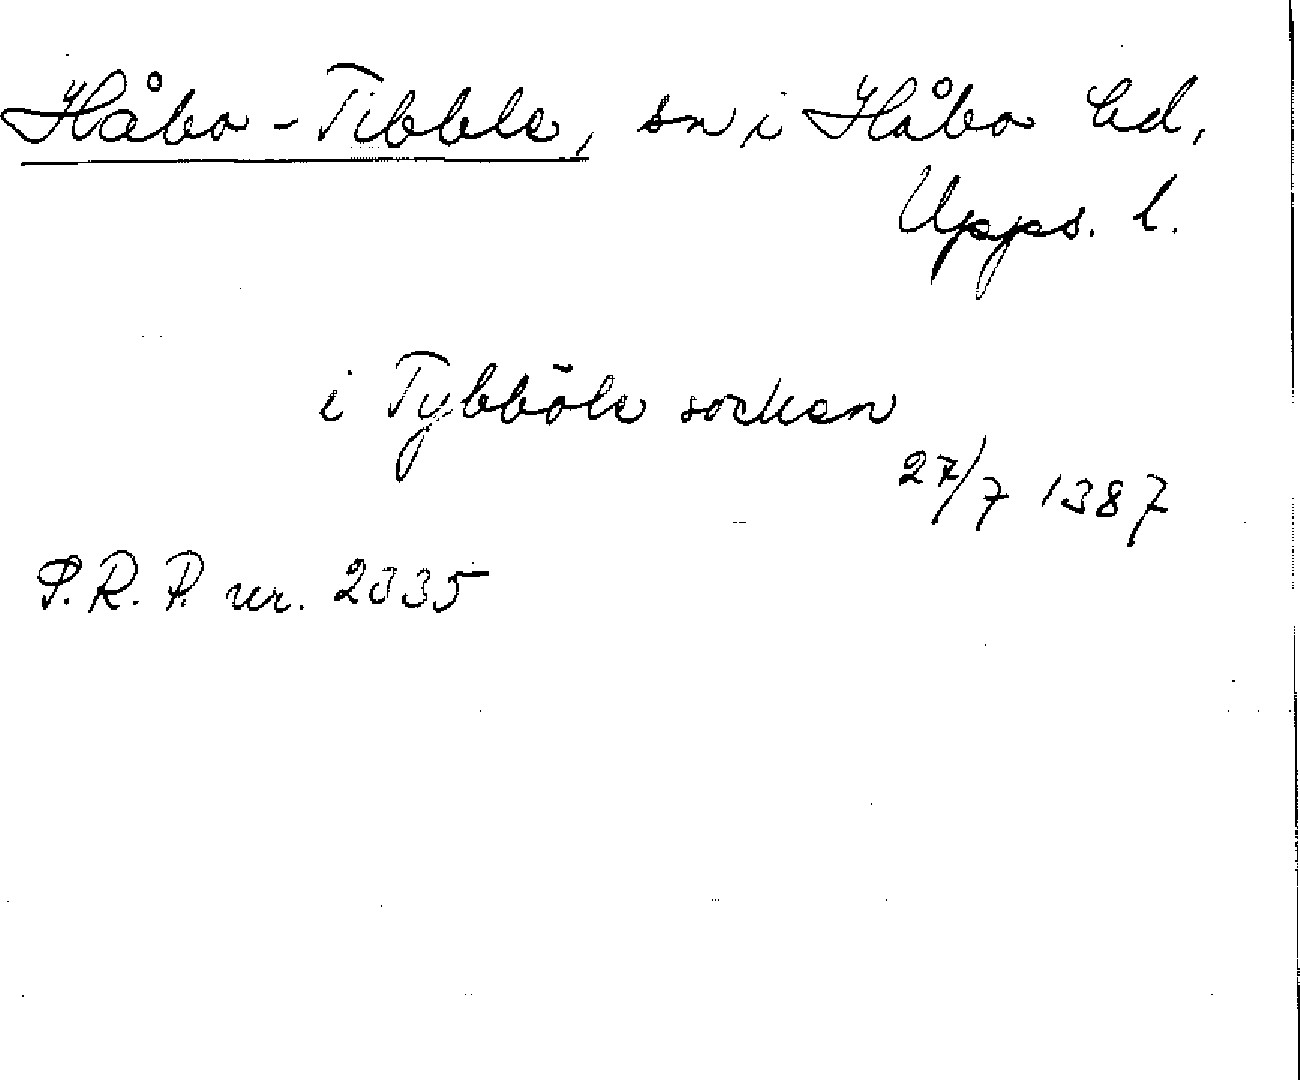 Håbo-Tibble, sn i Håbo hd,
Upps. l.
i Tybböle socken
27/7 1387
S.R.P. nr. 2335